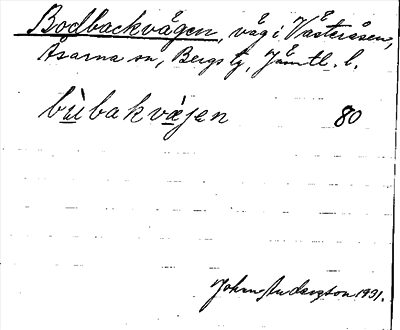 Bodbackvägen, väg i Västeråsen,
Åsarna sn, Bergs tg, Jämtl. l.
bùbakvä́jen 80
John Anderzton 1931.